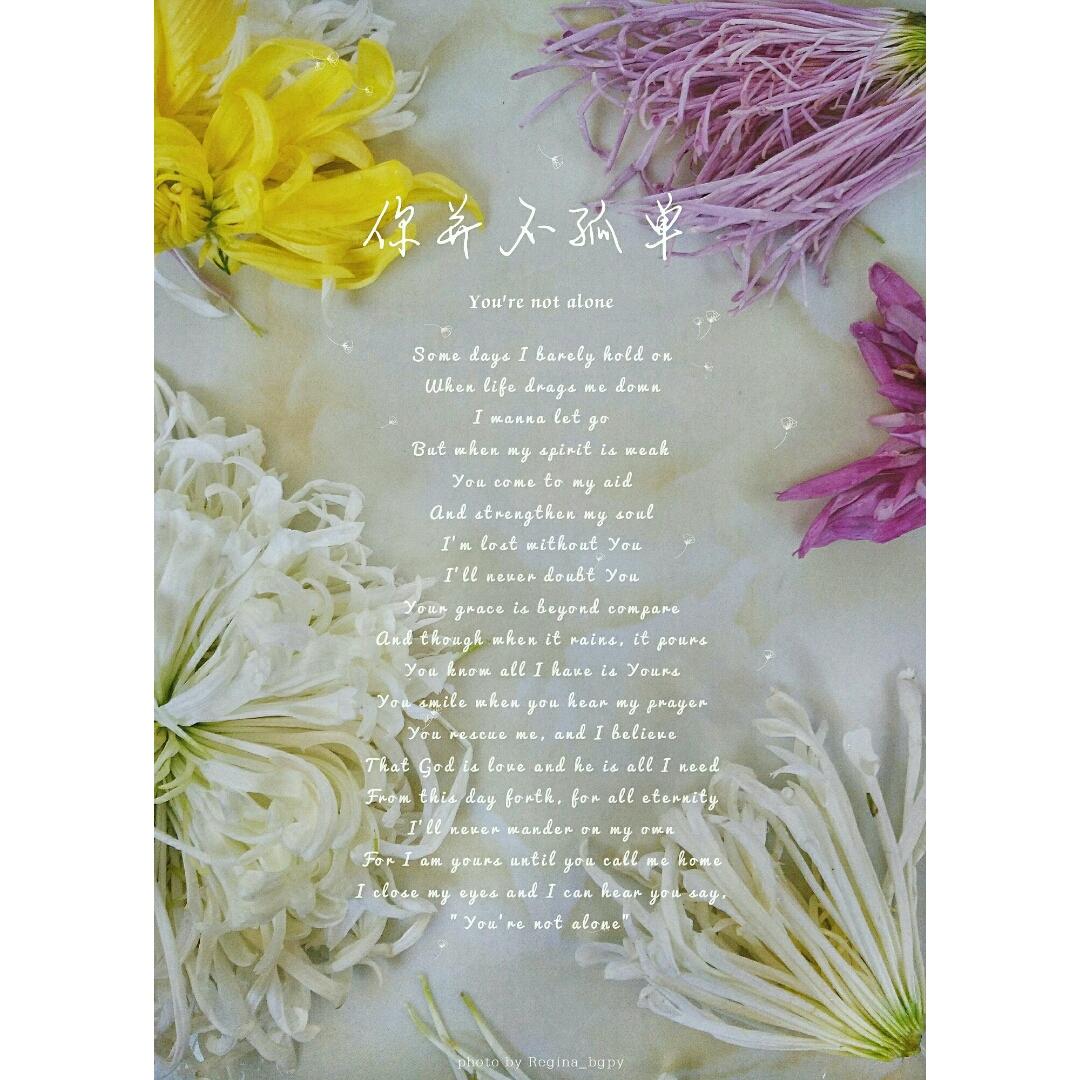 你并不孤单
You're not alone
Some days I barely hold on
When life drags me down
I wanna let go
But when my spirit is weak
You come to my aid
And strengthen my soul
I'm lost without You
I'll never doubt You
Your grace is beyond compare
And though when it rains, it pours
You know all I have is Yours
You smile when you hear my prayer
You rescue me, and I believe
That God is love and he is all I need
From this day forth, for all eternity
I'll never wander on my own
For I am yours until you call me home
I close my eyes and I can hear you say,
"You're not alone"
photo by Regina_bgpy